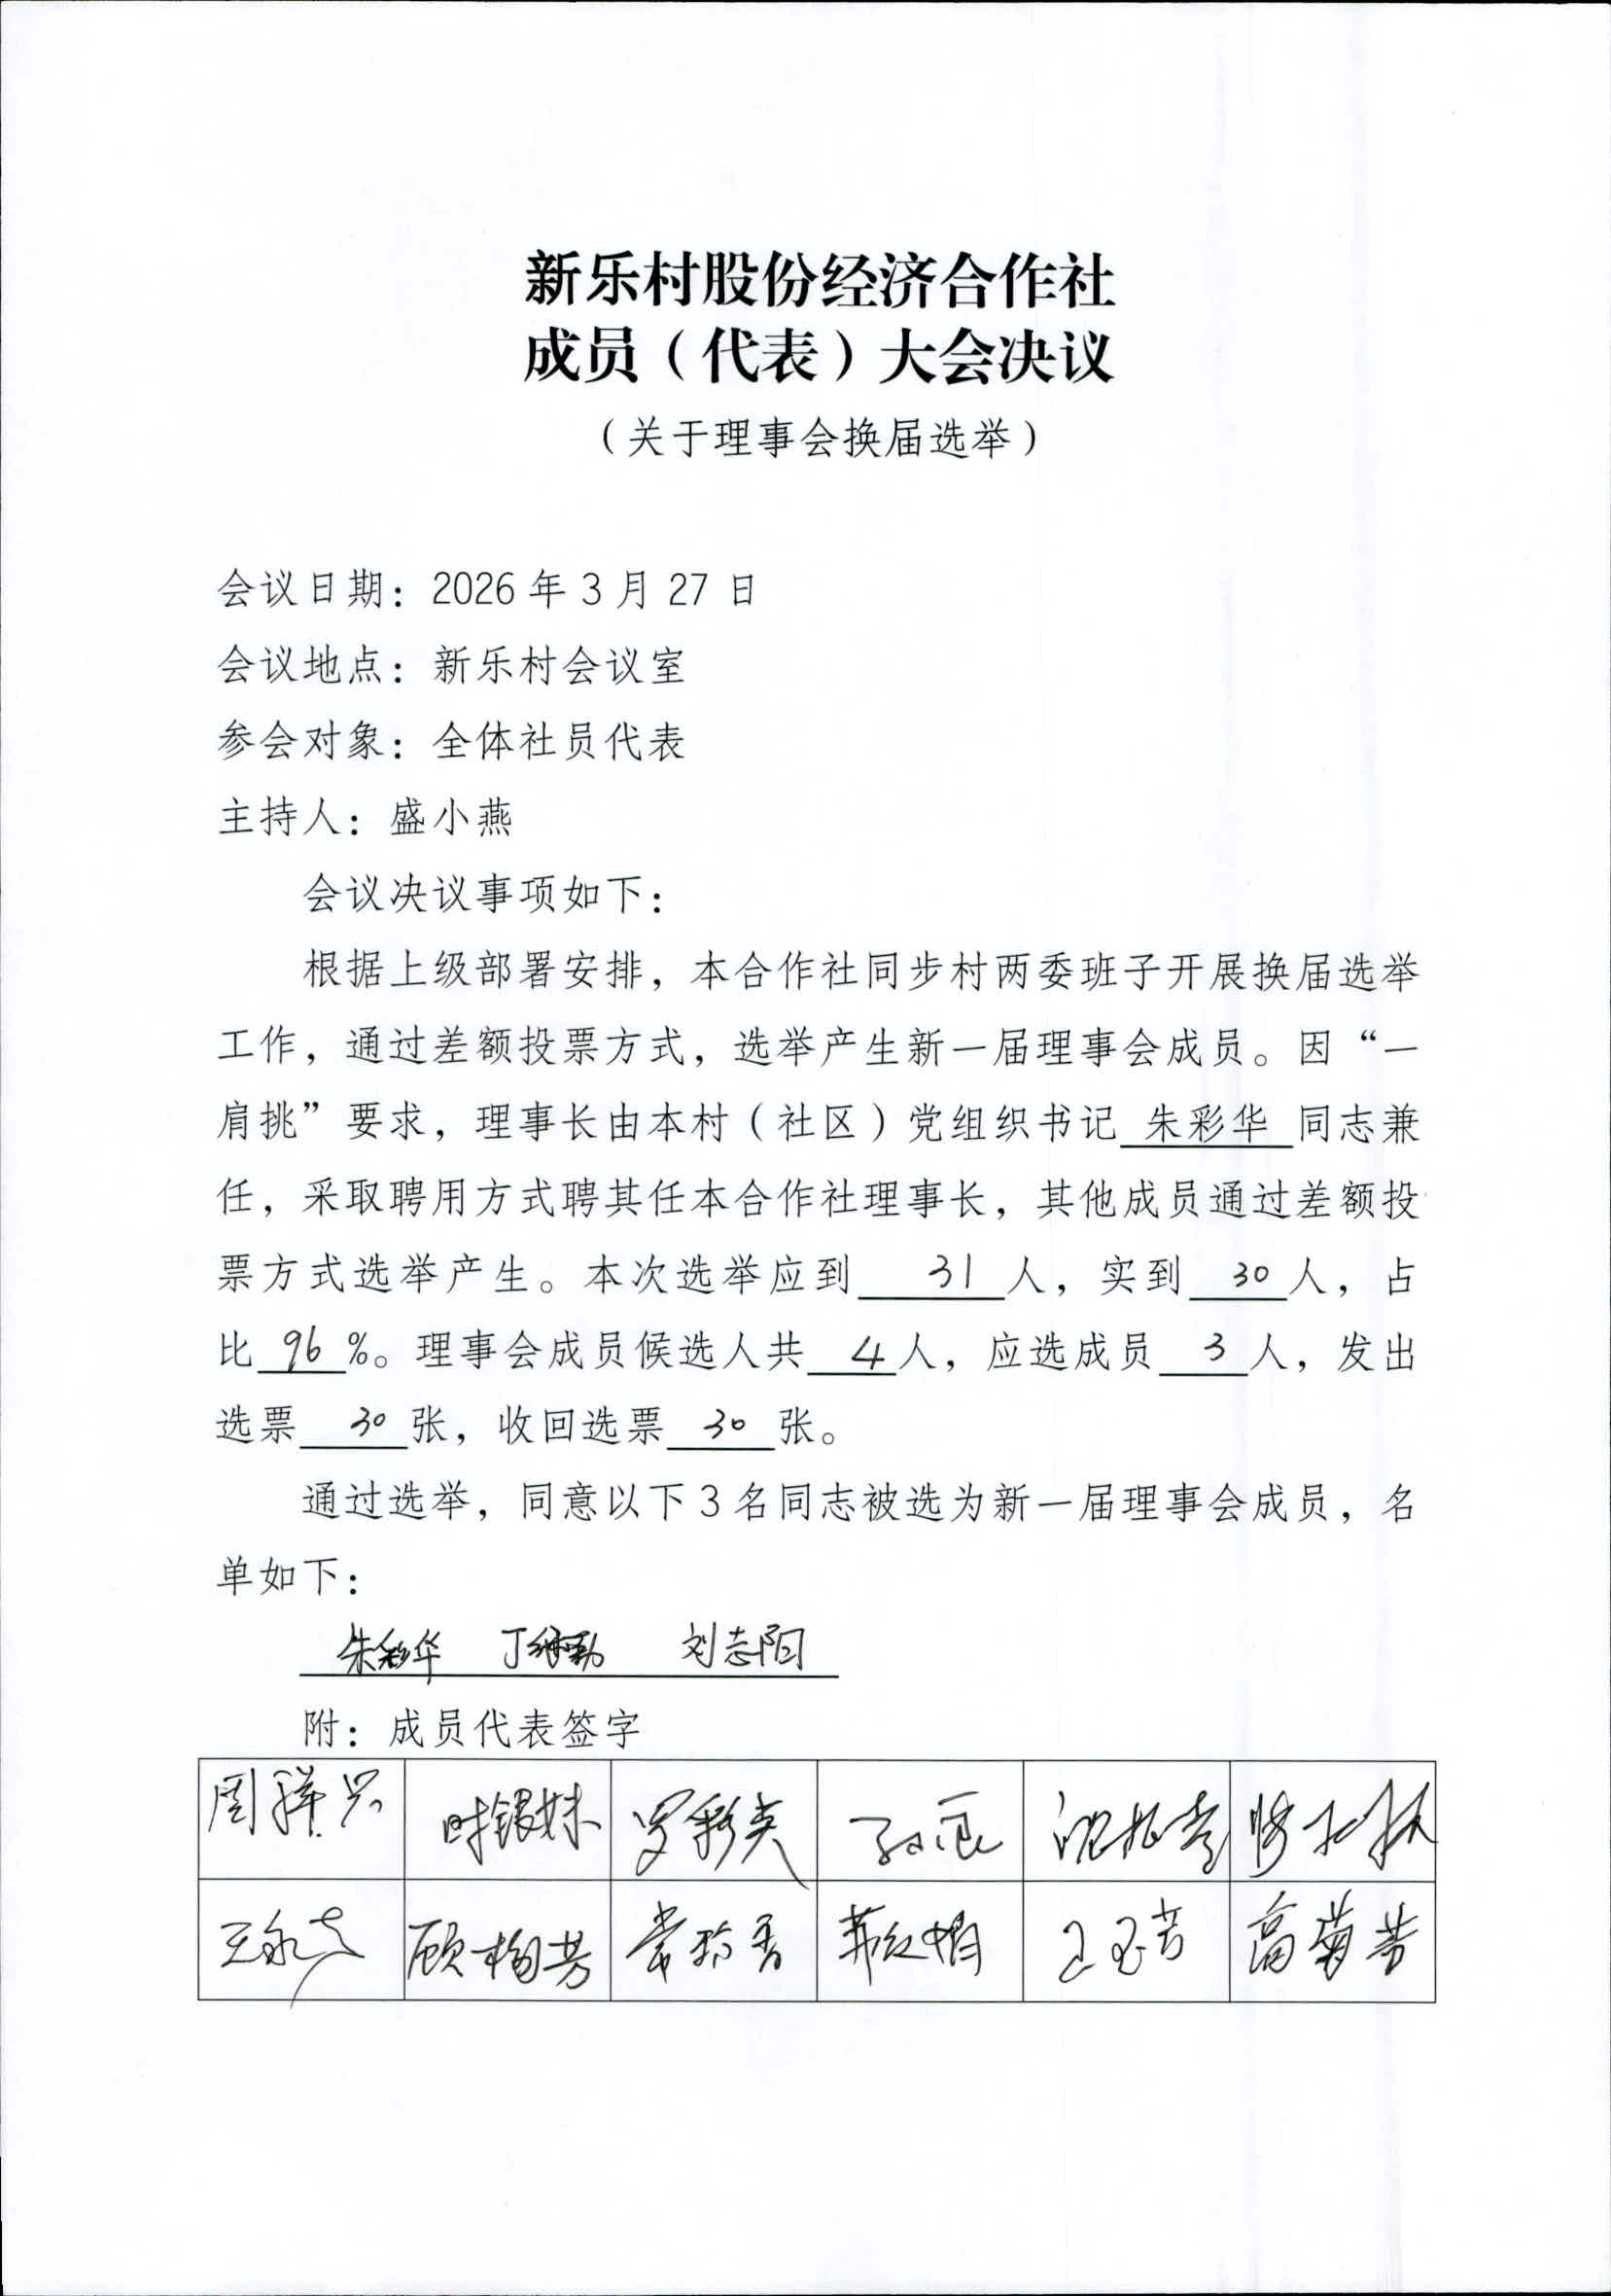 新乐村股份经济合作社
成员（代表）大会决议
（关于理事会换届选举）
会议日期：2026年3月27日
会议地点：新乐村会议室
参会对象：全体社员代表
主持人：盛小燕
会议决议事项如下：
根据上级部署安排，本合作社同步村两委班子开展换届选举
工作，通过差额投票方式，选举产生新一届理事会成员。因“一
肩挑”要求，理事长由本村（社区）党组织书记 朱彩华 同志兼
任，采取聘用方式聘其任本合作社理事长，其他成员通过差额投
票方式选举产生。本次选举应到 31 人，实到 30 人，占
比 96 %。理事会成员候选人共 4 人，应选成员 3 人，发出
选票 30 张，收回选票 30 张。
通过选举，同意以下3名同志被选为新一届理事会成员，名
单如下：
朱彩华 刘志阳
附：成员代表签字
时银妹 罗彩英
顾梅芳 王玉芳 高菊芳